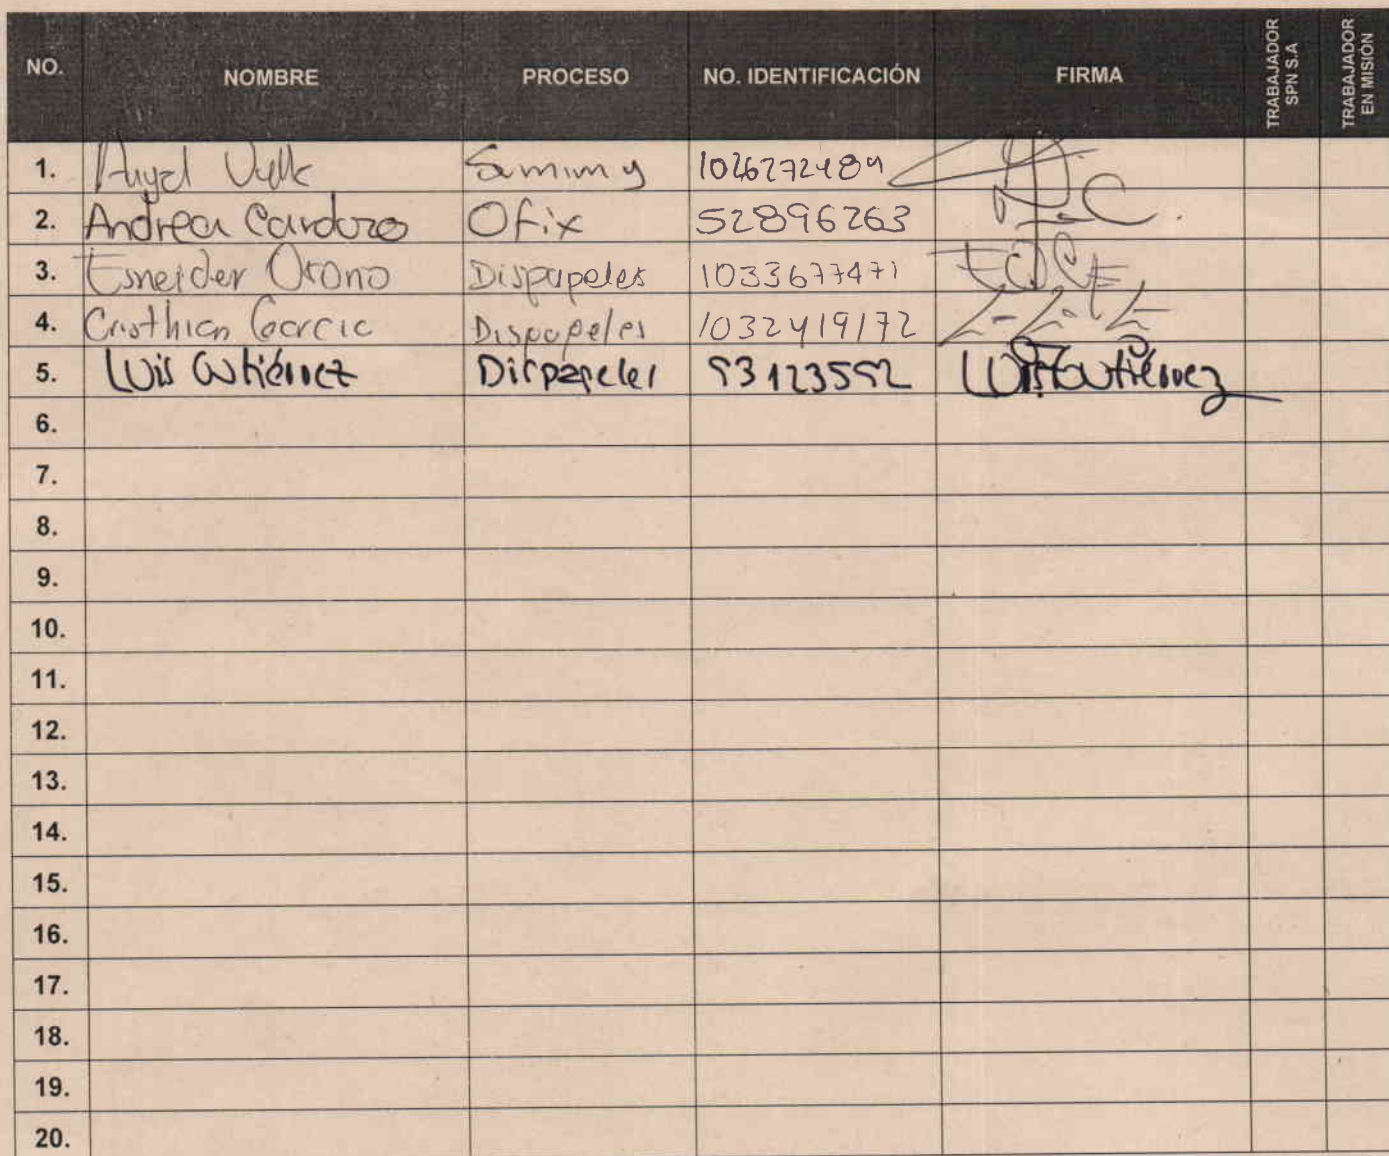 NO. NOMBRE PROCESO NO. IDENTIFICACIÓN FIRMA TRABAJADOR SPN S.A TRABAJADOR EN MISIÓN
1. Angel 1026272484
2. Andrea Cardozo Ofix 52896263 A.C.
3. Esneider Dispapeles 1033677471
4. Cristhian Garcia Dispapeles 1032419172
5. Luis Gutiérrez Dispapeles 93123552 Luis Gutiérrez
6.
7.
8.
9.
10.
11.
12.
13.
14.
15.
16.
17.
18.
19.
20.